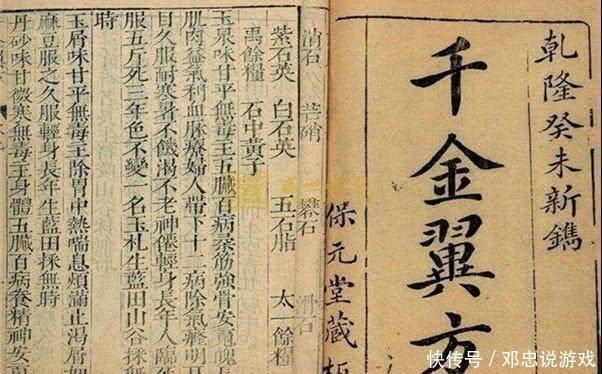 乾隆癸未新鐫
千金翼方
保元堂藏板
消石 芒硝 礬石 滑石
紫石英 白石英 五石脂 太一餘糧
禹餘糧 石中黃子
玉泉味甘平無毒主五臟百病柔筋強骨安魂魄長
肌肉益氣利血脉療婦人帶下十二病除氣癃明耳
目久服耐寒暑不饑渴不老神僊輕身長年人臨死
服五斤死三年色不變一名玉札生藍田山谷採無
時
玉屑味甘平無毒主除胃中熱喘息煩滿止渴屑如
麻豆服之久服輕身長年生藍田採無時
丹砂味甘微寒無毒主身體五臟百病養精神安
快传号／邓忠说游戏